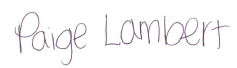 Paige Lambert